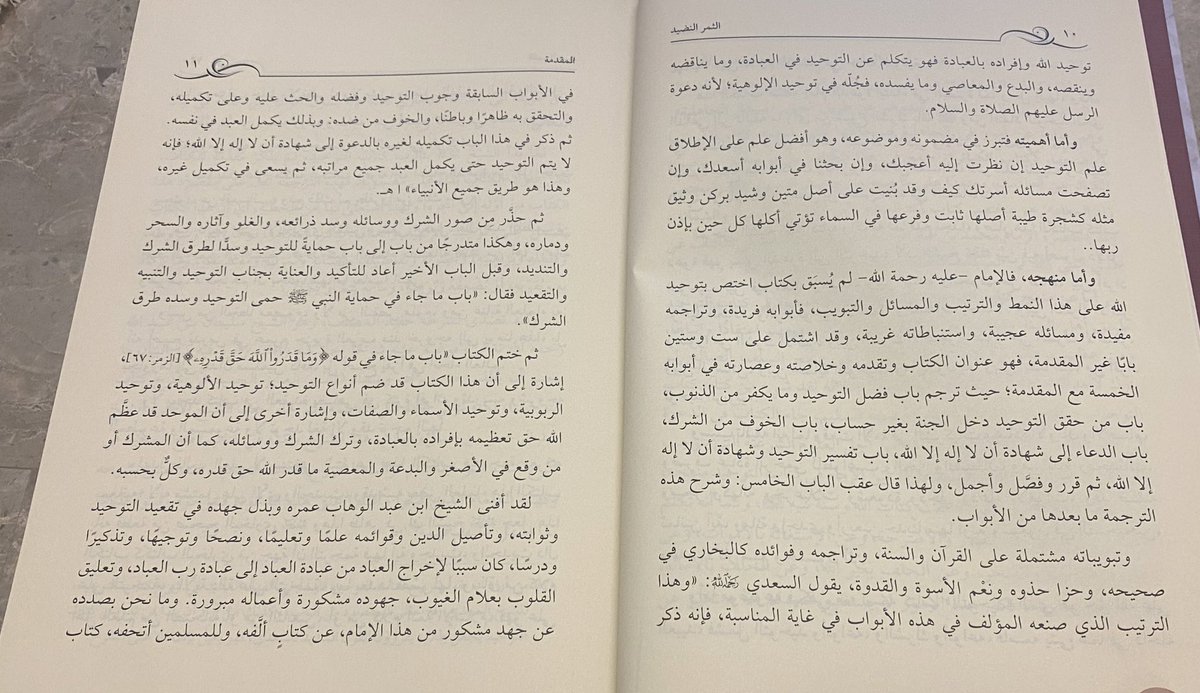 ١٠
الثمر النضيد
توحيد الله وإفراده بالعبادة فهو يتكلم عن التوحيد في العبادة، وما يناقضه
وينقصه، والبدع والمعاصي وما يفسده، فجُلّه في توحيد الإلوهية؛ لأنه دعوة
الرسل عليهم الصلاة والسلام.
وأما أهميته فتبرز في مضمونه وموضوعه، وهو أفضل علم على الإطلاق
علم التوحيد إن نظرت إليه أعجبك، وإن بحثنا في أبوابه أسعدك، وإن
تصفحت مسائله أسرتك كيف وقد بُنيت على أصل متين وشيد بركن وثيق
مثله كشجرة طيبة أصلها ثابت وفرعها في السماء تؤتي أكلها كل حين بإذن
ربها..
وأما منهجه، فالإمام -عليه رحمة الله- لم يُسبَق بكتاب اختص بتوحيد
الله على هذا النمط والترتيب والمسائل والتبويب، فأبوابه فريدة، وتراجمه
مفيدة، ومسائله عجيبة، واستنباطاته غريبة، وقد اشتمل على ست وستين
بابًا غير المقدمة، فهو عنوان الكتاب وتقدمه وخلاصته وعصارته في أبوابه
الخمسة مع المقدمة؛ حيث ترجم باب فضل التوحيد وما يكفر من الذنوب،
باب من حقق التوحيد دخل الجنة بغير حساب، باب الخوف من الشرك،
باب الدعاء إلى شهادة أن لا إله إلا الله، باب تفسير التوحيد وشهادة أن لا إله
إلا الله، ثم قرر وفصَّل وأجمل، ولهذا قال عقب الباب الخامس: وشرح هذه
الترجمة ما بعدها من الأبواب.
وتبويباته مشتملة على القرآن والسنة، وتراجمه وفوائده كالبخاري في
صحيحه، وحزا حذوه ونعْم الأسوة والقدوة، يقول السعدي رَحِمَهُ اللَّهُ: «وهذا
الترتيب الذي صنعه المؤلف في هذه الأبواب في غاية المناسبة، فإنه ذكر
المقدمة
١١
في الأبواب السابقة وجوب التوحيد وفضله والحث عليه وعلى تكميله،
والتحقق به ظاهرًا وباطنًا، والخوف من ضده: وبذلك يكمل العبد في نفسه.
ثم ذكر في هذا الباب تكميله لغيره بالدعوة إلى شهادة أن لا إله إلا الله؛ فإنه
لا يتم التوحيد حتى يكمل العبد جميع مراتبه، ثم يسعى في تكميل غيره،
وهذا هو طريق جميع الأنبياء» ا هـ.
ثم حذَّر مِن صور الشرك ووسائله وسد ذرائعه، والغلو وآثاره والسحر
ودماره، وهكذا متدرجًا من باب إلى باب حمايةً للتوحيد وسدًّا لطرق الشرك
والتنديد، وقبل الباب الأخير أعاد للتأكيد والعناية بجناب التوحيد والتنبيه
والتقعيد فقال: «باب ما جاء في حماية النبي ﷺ حمى التوحيد وسده طرق
الشرك».
ثم ختم الكتاب «باب ما جاء في قوله ﴿وَمَا قَدَرُوا اللَّهَ حَقَّ قَدْرِهِ﴾ [الزمر: ٦٧]،
إشارة إلى أن هذا الكتاب قد ضم أنواع التوحيد؛ توحيد الألوهية، وتوحيد
الربوبية، وتوحيد الأسماء والصفات، وإشارة أخرى إلى أن الموحد قد عظَّم
الله حق تعظيمه بإفراده بالعبادة، وترك الشرك ووسائله، كما أن المشرك أو
من وقع في الأصغر والبدعة والمعصية ما قدر الله حق قدره، وكلٌّ بحسبه.
لقد أفنى الشيخ ابن عبد الوهاب عمره وبذل جهده في تقعيد التوحيد
وثوابته، وتأصيل الدين وقوائمه علمًا وتعليمًا، ونصحًا وتوجيهًا، وتذكيرًا
ودرسًا، كان سببًا لإخراج العباد من عبادة العباد إلى عبادة رب العباد، وتعليق
القلوب بعلام الغيوب، جهوده مشكورة وأعماله مبرورة. وما نحن بصدده
عن جهد مشكور من هذا الإمام، عن كتابٍ ألَّفه، وللمسلمين أتحفه، كتاب